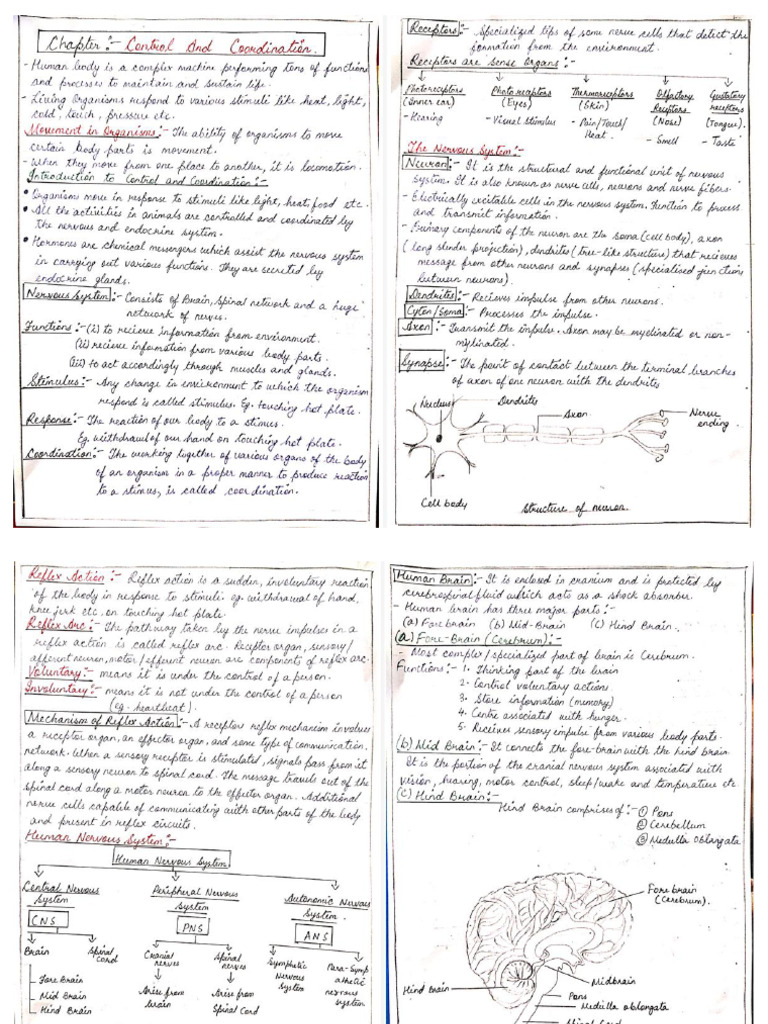 Chapter :- Control And Coordination.
- Human body is a complex machine performing tons of functions
and processes to maintain and sustain life.
- Living Organisms respond to various stimuli like heat, light,
cold, touch, pressure etc.
Movement in Organisms :- The ability of organisms to move
certain body parts is movement.
- When they move from one place to another, it is locomotion.
Introduction to Control and Coordination :-
• Organisms move in response to stimuli like light, heat, food etc.
• All the activities in animals are controlled and coordinated by
the nervous and endocrine system.
• Hormones are chemical messengers which assist the nervous system
in carrying out various functions. They are secreted by
endocrine glands.
Nervous System :- Consists of brain, spinal network and a huge
network of nerves.
Functions :- (i) to recieve information from environment.
(ii) recieve information from various body parts.
(iii) to act accordingly through muscles and glands.
Stimulus :- Any change in environment to which the organism
respond is called stimulus. Eg. touching hot plate.
Response :- The reaction of our body to a stimus.
Eg. withdrawl of our hand on touching hot plate.
Coordination :- The working together of various organs of the body
of an organism in a proper manner to produce reaction
to a stimus, is called coordination.
Receptors :- Specialized tips of some nerve cells that detect the
formation from the environment.
Receptors are sense Organs :-
Photoreceptors
(Inner ear)
- Hearing
Photo receptors
(Eyes)
- Visual Stimulus
Thermoreceptors
(Skin)
- Pain/Touch/
Heat.
Olfactory
Receptors
(Nose)
- Smell
Gustatory
receptors
(Tongue).
- Taste
The Nervous System :-
Neuron :- It is the structural and functional unit of nervous
system. It is also known as nerve cells, neurons and nerve fibers.
- Electrically excitable cells in the nervous system. Function to process
and transmit information.
- Primary components of the neuron are the soma (cell body), axon
(long slender projection), dendrites (tree-like structure) that recieves
message from other neurons and synapses (specialised junctions
between neurons).
Dendrites :- Recieves impulse from other neurons.
Cyton/Soma :- Processes the impulse.
Axon :- Transmit the impulse. Axon may be myelinated or non-
mylinated.
Synapse :- The point of contact between the terminal branches
of axon of one neuron with the dendrites
Nucleus
Dendrites
Axon
Nerve
ending.
Cell body
Structure of neuron.
Reflex Action :- Reflex action is a sudden, involuntary reaction
of the body in response to stimuli eg. withdrawal of hand,
knee jerk etc. on touching hot plate.
Reflex Arc :- The pathway taken by the nerve impulses in a
reflex action is called reflex arc. Receptor organ, sensory/
afferent neuron, motor/efferent neuron are components of reflex arc.
Voluntary :- means it is under the control of a person.
Involuntary :- means it is not under the control of a person
(eg. heartbeat).
Mechanism of Reflex Action :- A receptors reflex mechanism involves
a receptor organ, an effector organ, and some type of communication.
network. When a sensory receptor is stimulated, signals pass from it
along a sensory neuron to spinal cord. The message travels out of the
spinal cord along a motor neuron to the effector organ. Additional
nerve cells capable of communicating with other parts of the body
and present in reflex circuits.
Human Nervous System :-
Human Nervous System
Central Nervous
System
CNS
Peripheral Nervous
System
PNS
Autonomic Nervous
System.
ANS
Brain
Spinal
Cord
Cranial
nerves
Spinal
nerves
Sympthetic
Nervous
System
Para-Symp
athetic
nervous
system
Fore Brain
Mid Brain
Hind Brain
Arise from
brain
Arise from
Spinal Cord
Human Brain :- It is enclosed in cranium and is protected by
cerebrospinal fluid which acts as a shock absorber.
- Human brain has three major parts :-
(a) Fore brain (b) Mid-Brain (c) Hind Brain.
(a) Fore-Brain (Cerebrum) :-
- Most complex/specialized part of brain is Cerebrum.
Functions :- 1. Thinking part of the brain
2. Control voluntary actions.
3. Store information (memory)
4. Centre associated with hunger.
5. Receives sensory impulse from various body parts.
(b) Mid Brain :- It connects the fore-brain with the hind brain.
It is the portion of the cranial nervous system associated with
vision, hearing, motor control, sleep/wake and temperature etc.
(c) Hind Brain :-
Hind Brain comprises of :- ① Pons
② Cerebellum
③ Medulla Oblongata
Fore brain
(Cerebrum).
Hind Brain
Midbrain
Pons
Medulla oblongata
Spinal Cord